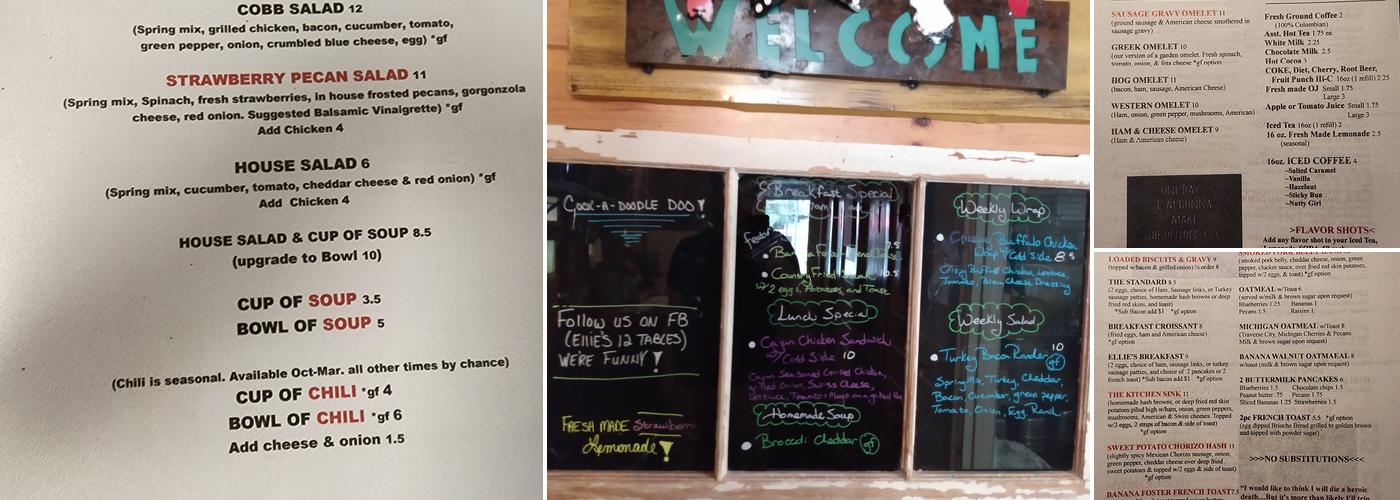 COBB SALAD 12
(Spring mix, grilled chicken, bacon, cucumber, tomato,
green pepper, onion, crumbled blue cheese, egg) *gf
STRAWBERRY PECAN SALAD 11
(Spring mix, Spinach, fresh strawberries, in house frosted pecans, gorgonzola
cheese, red onion. Suggested Balsamic Vinaigrette) *gf
Add Chicken 4
HOUSE SALAD 6
(Spring mix, cucumber, tomato, cheddar cheese & red onion) *gf
Add Chicken 4
HOUSE SALAD & CUP OF SOUP 8.5
(upgrade to Bowl 10)
CUP OF SOUP 3.5
BOWL OF SOUP 5
(Chili is seasonal. Available Oct-Mar. all other times by chance)
CUP OF CHILI *gf 4
BOWL OF CHILI *gf 6
Add cheese & onion 1.5
WELCOME
COCK-A-DOODLE DOO!
FOLLOW US ON FB
(ELLIE'S 12 TABLES)
WE'RE FUNNY!
FRESH MADE Strawberry
Lemonade
Breakfast Special
Country Fried
w/ 2 eggs, Potatoes, and Toast
Lunch Special
Cajun Chicken Sandwich
w/ Cold Side 10
Cajun Seasoned Grilled Chicken,
Red Onion, Swiss Cheese,
Lettuce, Tomato + Mayo on a grilled
Homemade Soup
Broccoli Cheddar gf
Weekly Wrap
Crispy Buffalo Chicken
Wrap w/ Cold Side 8.5
Crispy Buffalo Chicken, Lettuce,
Tomato, Bleu Cheese Dressing
Weekly Salad
10
Turkey Bacon Rander gf
Spring Mix, Turkey, Cheddar,
Bacon, Cucumber, green pepper,
Tomato, Onion, Egg Rand
SAUSAGE GRAVY OMELET 11
(ground sausage & American cheese smothered in
sausage gravy)
GREEK OMELET 10
(our version of a garden omelet. Fresh spinach,
tomato, onion, & feta cheese *gf option
HOG OMELET 11
(bacon, ham, sausage, American Cheese)
WESTERN OMELET 10
(Ham, onion, green pepper, mushrooms, American)
HAM & CHEESE OMELET 9
(Ham & American cheese)
ONE DAY
I'M GONNA
MAKE
THE ONIONS CRY
Fresh Ground Coffee 2
(100% Colombian)
Asst. Hot Tea 1.75 ea
White Milk 2.25
Chocolate Milk 2.5
Hot Cocoa 3
COKE, Diet, Cherry, Root Beer,
Fruit Punch Hi-C 16oz (1 refill) 2.25
Fresh made OJ Small 1.75
Large 3
Apple or Tomato Juice Small 1.75
Large 3
Iced Tea 16oz (1 refill) 2
16 oz. Fresh Made Lemonade 2.5
(seasonal)
16oz. ICED COFFEE 4
~Salted Caramel
~Vanilla
~Hazelnut
~Sticky Bun
~Nutty Girl
>FLAVOR SHOTS<
Add any flavor shot to your Iced Tea,
LOADED BISCUITS & GRAVY 9
(topped w/bacon & grilled onion) ½ order 8
THE STANDARD 8.5
(2 eggs, choice of Ham, Sausage links, or Turkey
sausage patties, homemade hash browns or deep
fried red skins, and toast)
*Sub Bacon add $1 *gf option
BREAKFAST CROISSANT 8
(fried eggs, ham and American cheese)
*gf option
ELLIE'S BREAKFAST 9
(2 eggs, choice of ham, sausage links, or turkey
sausage patties, and choice of 2 pancakes or 2
french toast) *Sub bacon add $1 *gf option
THE KITCHEN SINK 11
(homemade hash browns, or deep fried red skin
potatoes piled high w/ham, onion, green peppers,
mushrooms, American & Swiss cheeses. Topped
w/2 eggs, 2 strips of bacon & side of toast)
*gf option
SWEET POTATO CHORIZO HASH 11
(slightly spicy Mexican Chorizo sausage, onion,
green pepper, cheddar cheese over deep fried
sweet potatoes & topped w/2 eggs & side of toast)
*gf option
BANANA FOSTER FRENCH TOAST 7.5
(smoked pork belly, cheddar cheese, onion, green
pepper, clucker sauce, over fried red skin potatoes,
topped w/2 eggs, & toast) *gf option
OATMEAL w/Toast 6
(served w/milk & brown sugar upon request)
Blueberries 1.25 Bananas 1
Pecans 1.5 Raisins 1
MICHIGAN OATMEAL w/Toast 8
(Traverse City, Michigan Cherries & Pecans.
Milk & brown sugar upon request)
BANANA WALNUT OATMEAL 8
w/toast (milk & brown sugar upon request)
2 BUTTERMILK PANCAKES 6
Blueberries 1.5 Chocolate chips 1.5
Peanut butter .75 Pecans 1.75
Sliced Bananas 1.25 Strawberries 1.5
2pc FRENCH TOAST 5.5 *gf option
(egg dipped Brioche Bread grilled to golden brown
and topped with powder sugar)
>>>NO SUBSTITUTIONS<<<
"I would like to think I will die a heroic
death....But it's more than likely I'll trip